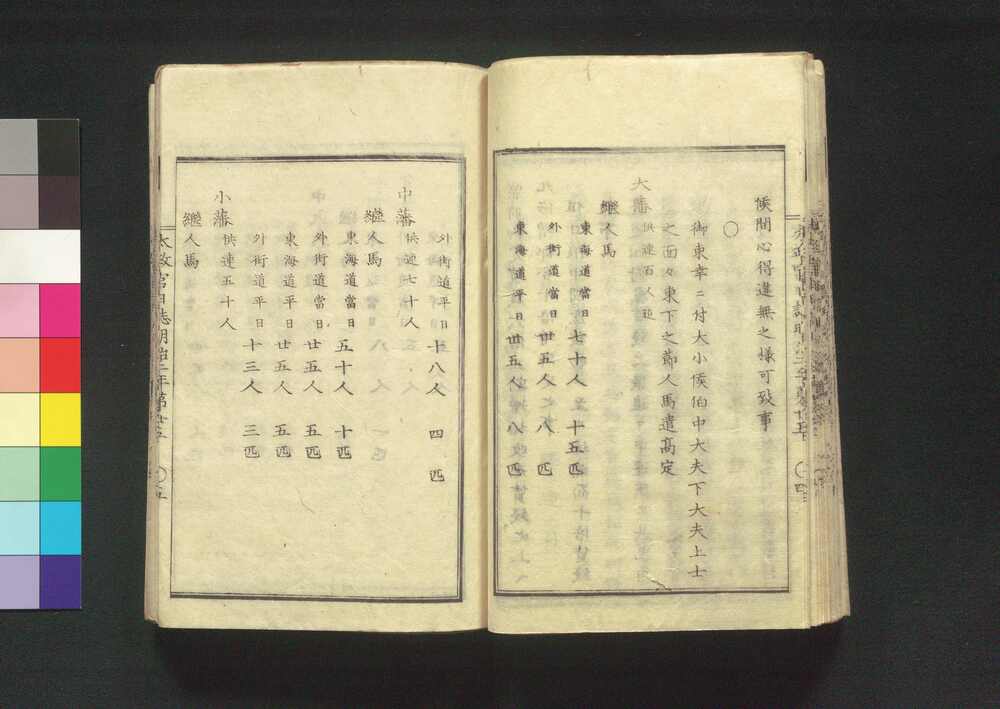 候間心得違無之樣可致事
〇
御東幸ニ付大小侯伯中大夫下大夫上士
之面々東下之節人馬遣高定
大藩 供連百人
繼人馬
東海道當日 七十人 十五匹
外街道當日 丗五人 八匹
東海道平日 丗五人 八匹
外街道平日 十八人 四匹
中藩 供連七十人
繼人馬
東海道當日 五十人 十匹
外街道當日 廿五人 五匹
東海道平日 廿五人 五匹
外街道平日 十三人 三匹
小藩 供連五十人
繼人馬
太政官日誌明治二年第廿五 〇五